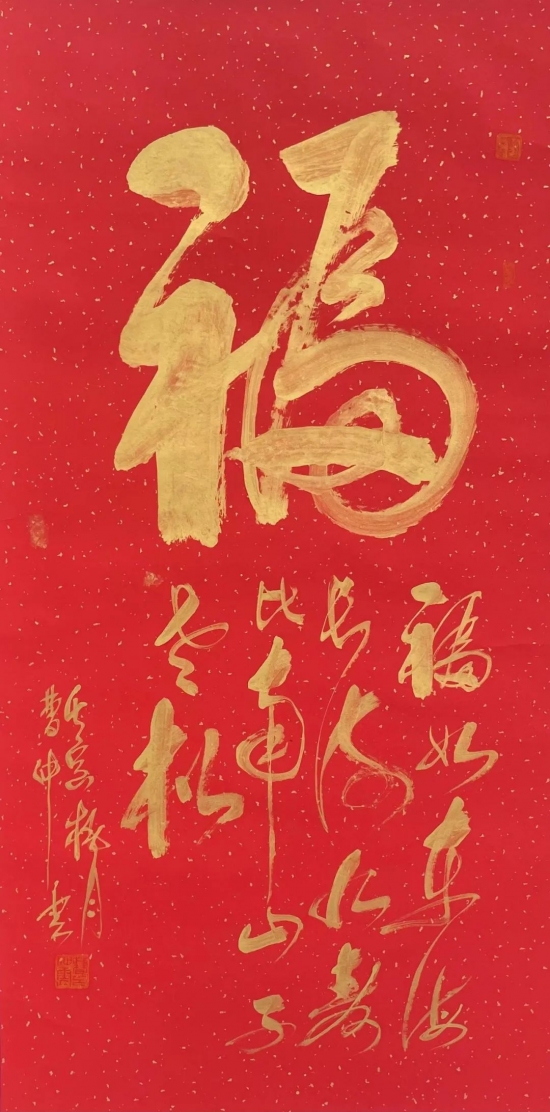 福
福如东海
长流水寿
比南山不
老松
月
曹 书